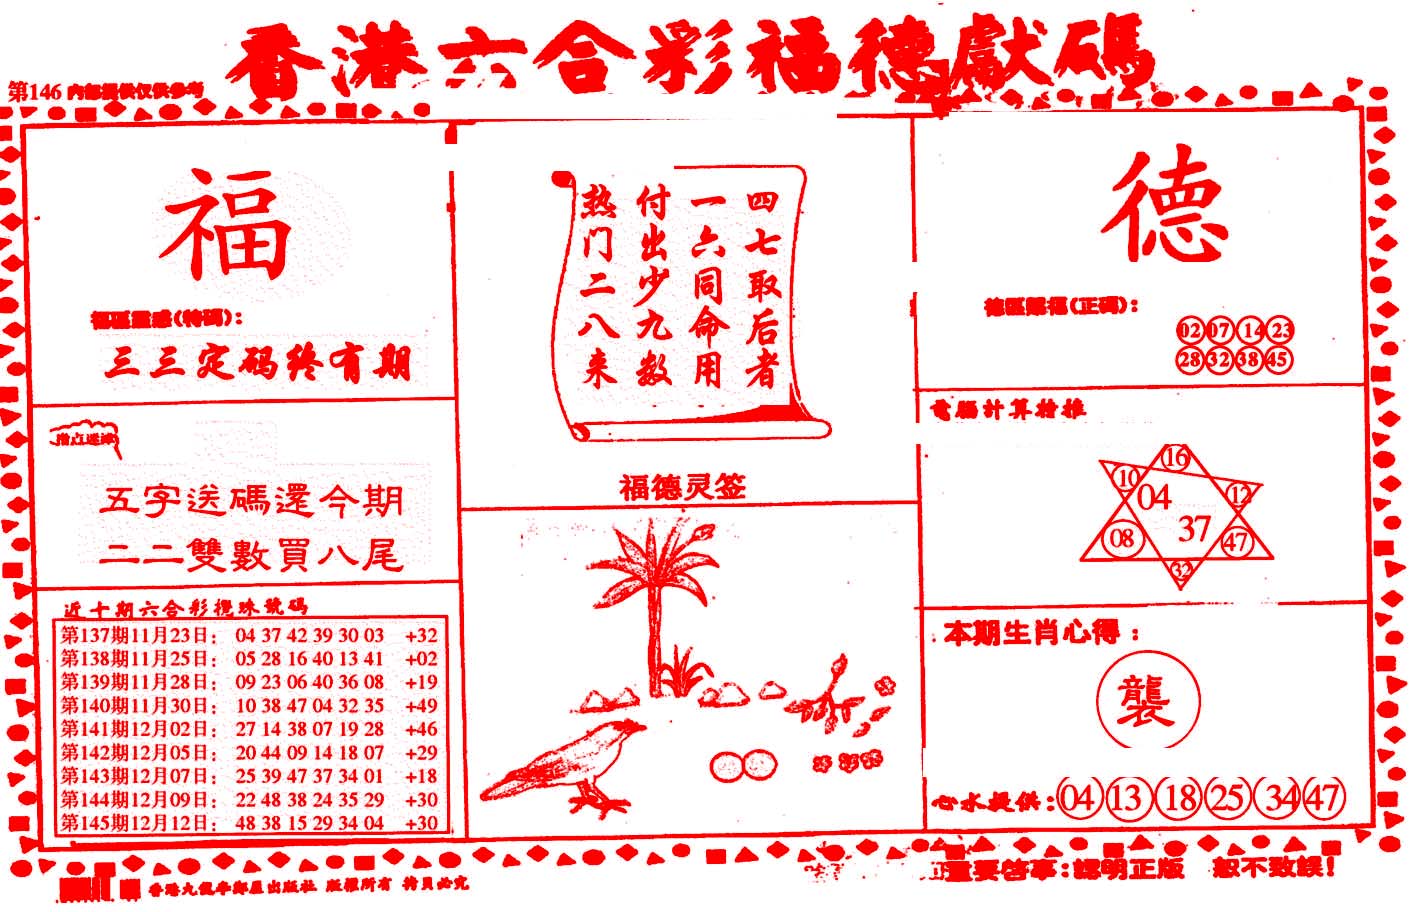 香港六合彩福德獻碼
第146 内部提供仅供参考
福
福區靈感(特碼):
三三定码终有期
指点迷津
五字送碼還今期
二二雙數買八尾
近十期六合彩攪珠號碼
第137期11月23日: 04 37 42 39 30 03 +32
第138期11月25日: 05 28 16 40 13 41 +02
第139期11月28日: 09 23 06 40 36 08 +19
第140期11月30日: 10 38 47 04 32 35 +49
第141期12月02日: 27 14 38 07 19 28 +46
第142期12月05日: 20 44 09 14 18 07 +29
第143期12月07日: 25 39 47 37 34 01 +18
第144期12月09日: 22 48 38 24 35 29 +30
第145期12月12日: 48 38 15 29 34 04 +30
四七取后者
一六同命用
付出少九数
热门二八来
福德灵签
德
德區賜福(正码):
02 07 14 23
28 32 38 45
電腦計算精推
16
10
04
12
37
08
47
32
本期生肖心得:
襲
心水提供: 04 13 18 25 34 47
香港九龍 出版社 版權所有 拷貝必究
重要啓事:認明正版 恕不致誤!